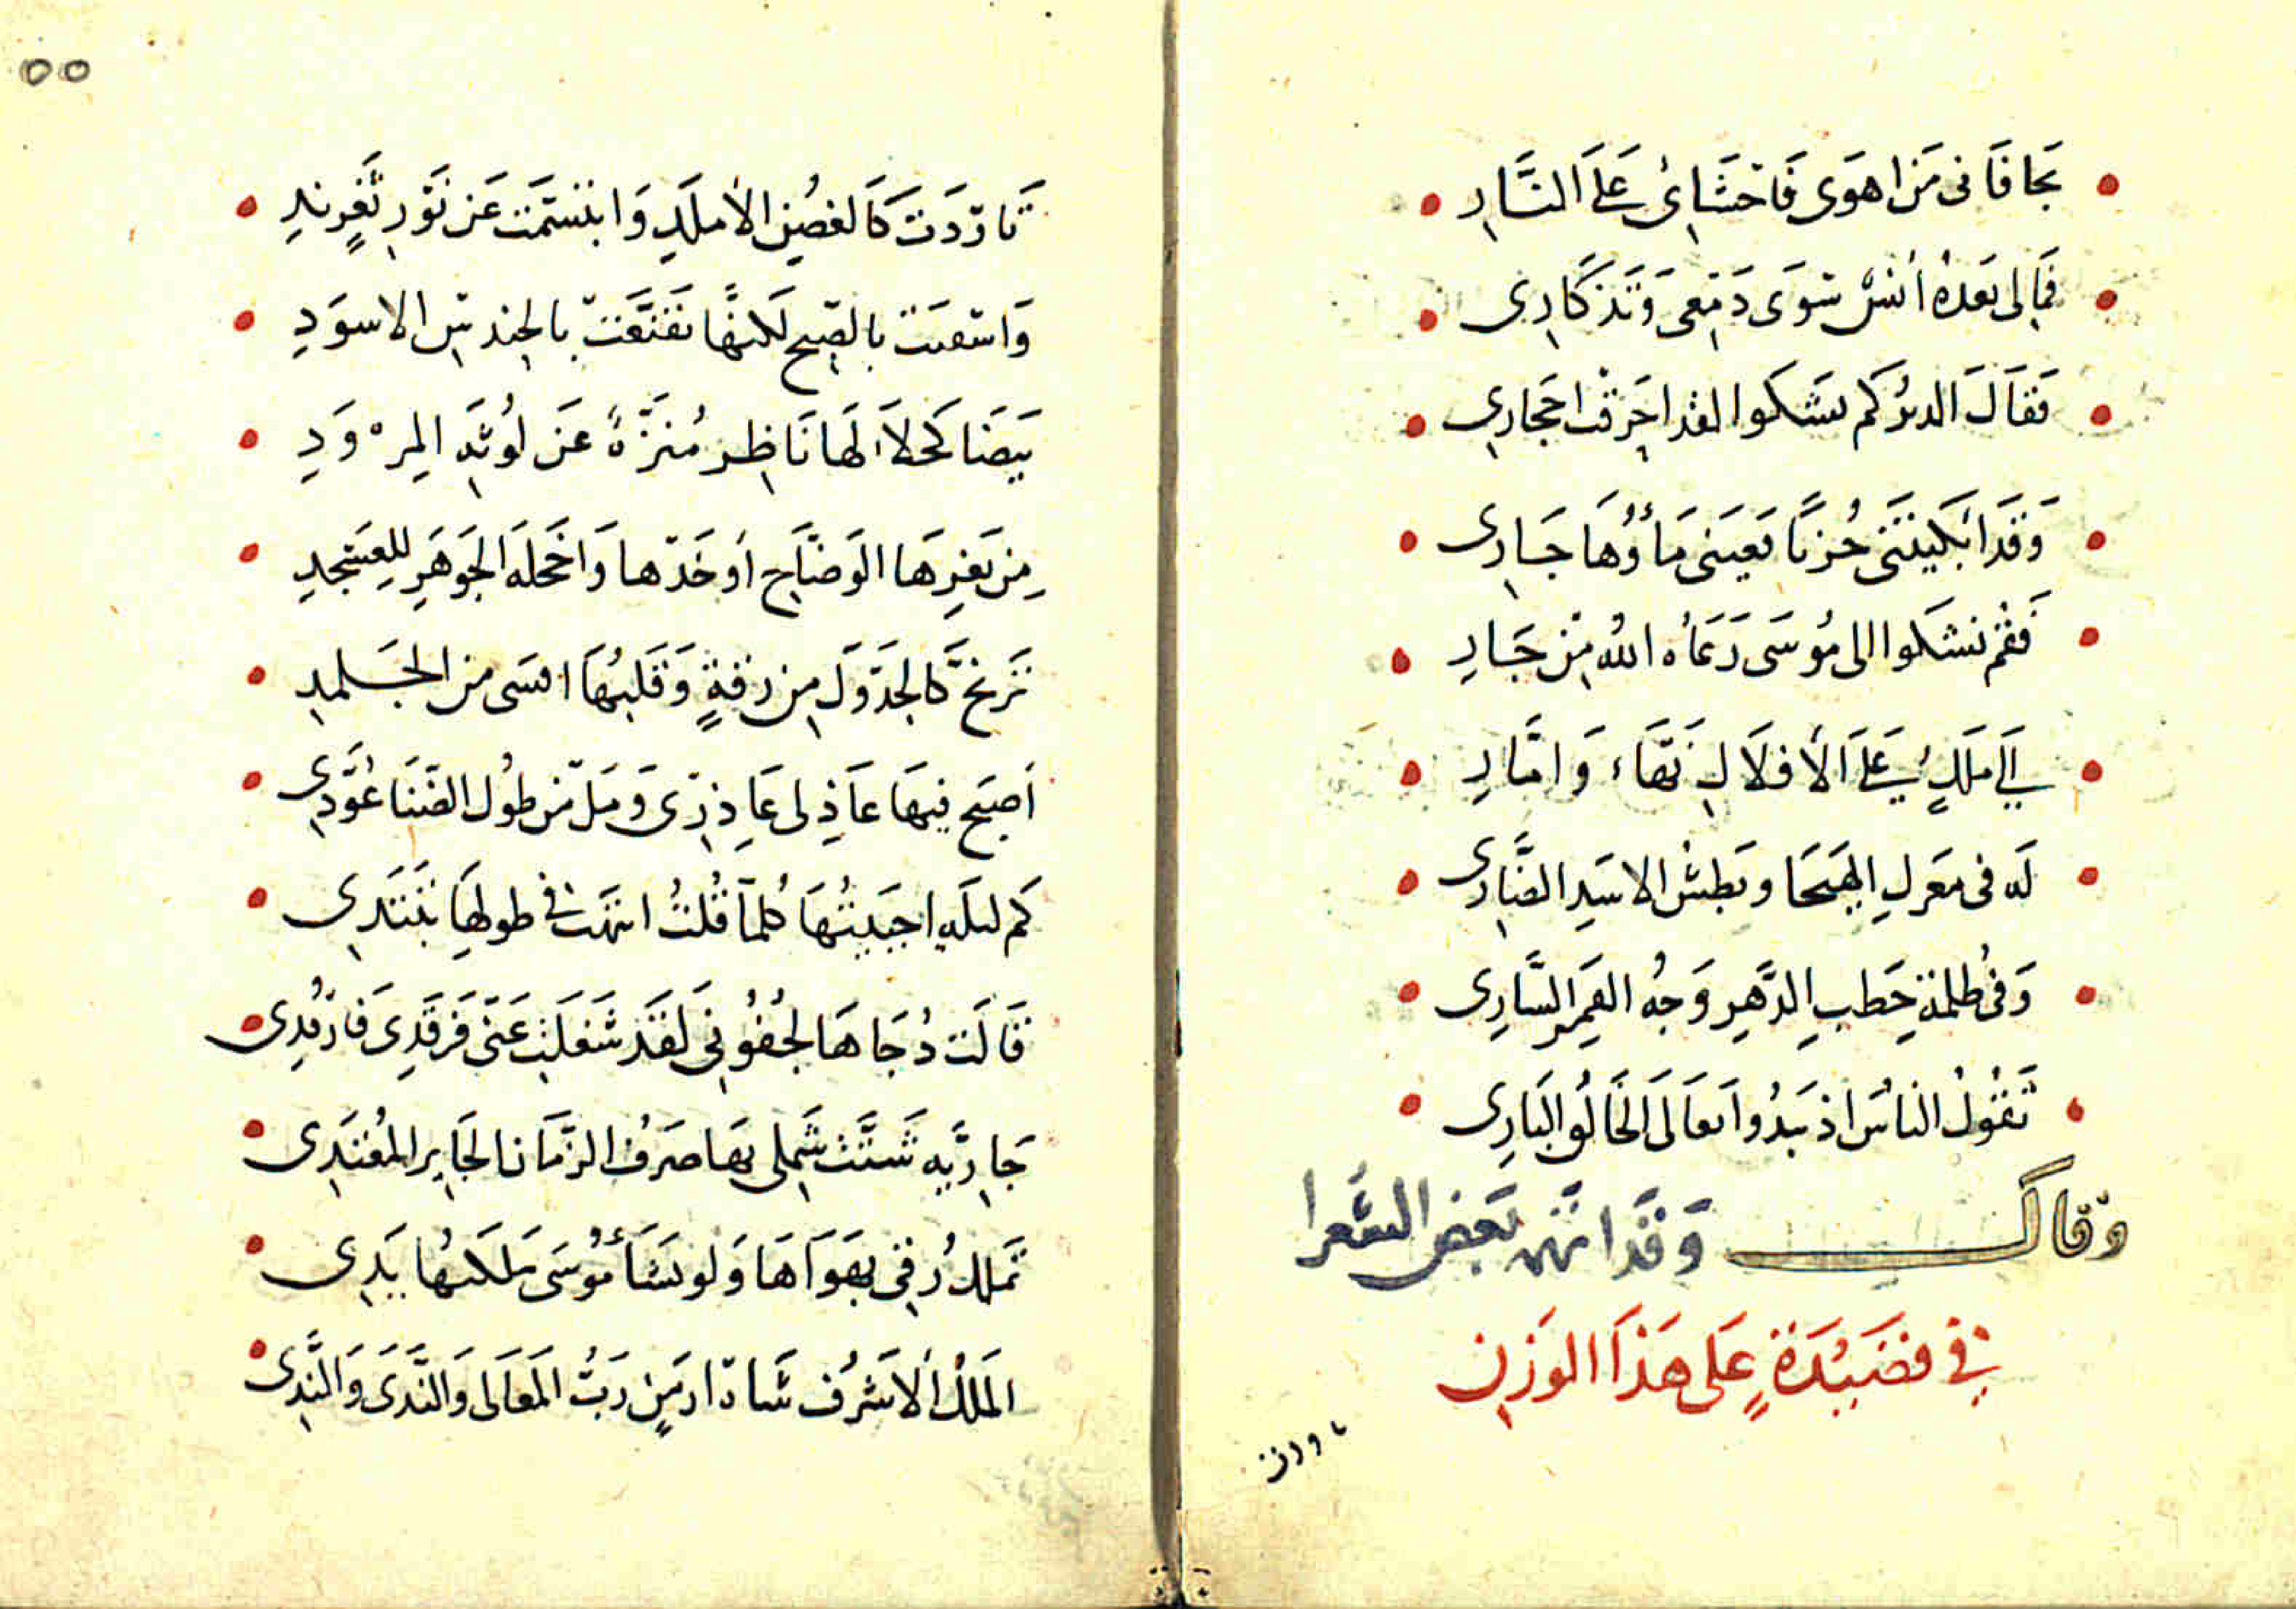 تجافانى مَن اهوَى فَاحشَائ عَلَى النَّارِ
فمالى بَعدهُ انسٌ سَوَى دَمعى وَتَذكَارِى
فقَالَ الدير كم تشكوا لقد احرقت احجارى
وَقَد ابكَيتَنى حُزنًا بعَينى مَاؤُهَا جَارِى
فَقم نشكوا الى مُوسَى رَعَاه اللهُ مِن جَارِ
الى مَلكٍ عَلَى الافلاك نَهَّاء وَامَّارِ
لَه فى مَعرَكِ الهَيجَا وبَطش الاسَدِ الضَّارِى
وَفى ظُلمَة خَطبِ الدَّهرِ وَجهُ القَمر السَّارِى
تَقُول الناسُ اذ يَبدُوا تعَالَى الخَالقُ البَارِى
وقال وَقَد اتهم بَعض الشعرا
فِي قَصِيدَةٍ عَلَى هَذَا الوَزنِ
تاودت
٥٥
تَاوّدَت كَالغصُن الأملَدِ وَابتسَمَت عَن نَوْرِ ثَغرٍ نَدِ
وَاسَفرت بالصبح لكنهَا تَقَنّعَت بالحِندسِ الاسوَدِ
بَيضَا كَحلاَء لَهَا نَاظِر مُنَزَّهٌ عَن لَوثَه المِروَدِ
مِن ثغرِهَا الوَضَّاحِ أو خَدّها وَاخَجلَه الجَوهَرِ للعسجدِ
تَرتجَّ كالجَدوَل مِن رقةٍ وَقَلبُهَا اقسَى من الجَلمدِ
اَصبَح فيهَا عَاذِلى عَاذِرِى وَمَلّ مِن طُول الضَنَا عُوَّدِى
كم ليلَه احيَيتُهَا كُلمَا قُلتُ انتهَت فى طولهَا تَبتَدِى
قَالَت دُجَاهَا لجُفُونِى لَقَد شَغَلتِ عَنّى فَرقَدِى فَارقُدِى
جَارِيَه شَتّتَ شَملى بهَا صَرفُ الزَّمَان الجَايِر المُعتَدِى
تملك رقى بهَوَاهَا وَلو يشَاءُ مُوسَى مَلكتهَا يَدِى
المَلكُ الأشرُف شَاه ارمَنٍ رَبُّ المَعَالَى وَالنَّدَى وَالنَّدِى